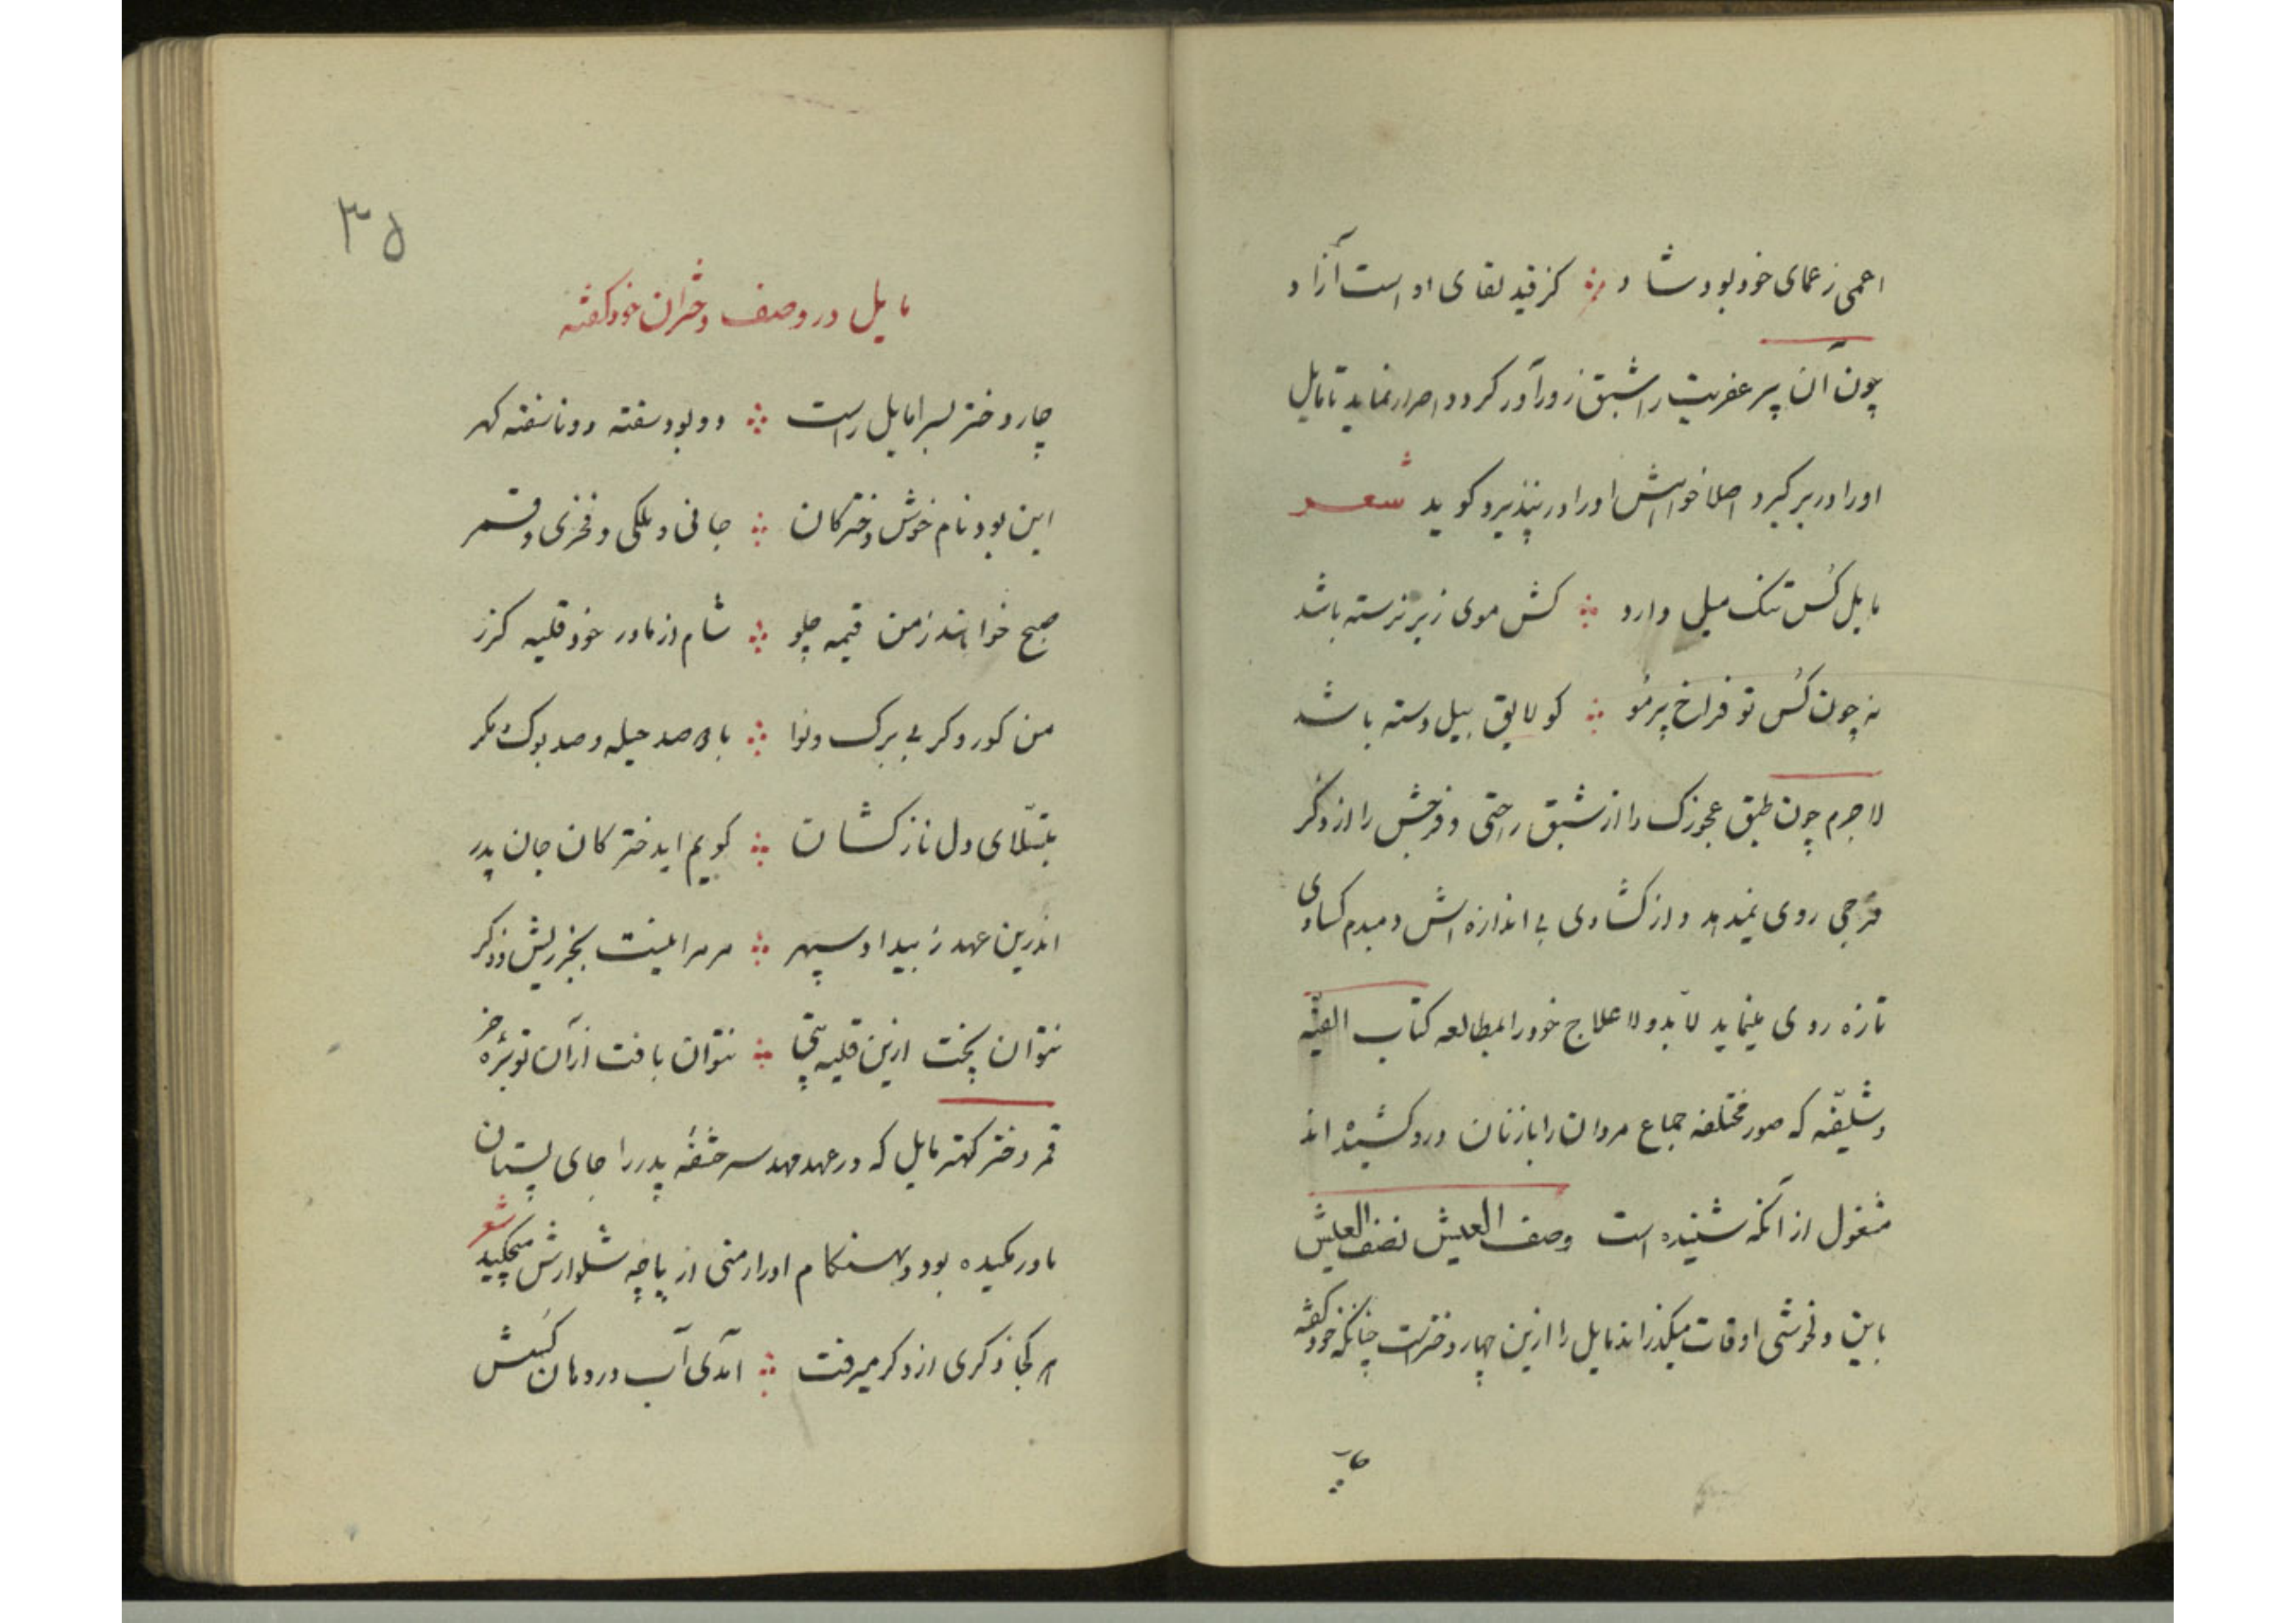 اعمی ز عمای خود بود شاد کز قید لقای او است آزاد
چون آن پیر عفریت را شبق زورآور گردد و اصرار نماید تا مایل
او را در بر گیرد اصلا خواهش او را در نپذیرد و گوید شعر
مایل کُس تنگ میل دارد کش موی زبر نرسته باشد
نه چون کُس تو فراخ پرمُو کو لایق بیل دسته باشد
لاجرم چون طبق عجوزک را از شبق راحتی و فرجش را از ذکر
فرجی روی نمیدهد و از گشادی بی اندازه اش دمبدم کسادی
تازه روی مینماید لابد و لاعلاج خود را بمطالعه کتاب الفیّه
و شلفیّه که صور مختلفه جماع مردان را با زنان در او کشیده اند
مشغول از آنکه شنیده است وصف العیش نصف العیش
باین دلخوشی اوقات میگذراند مایل را ازین چهار دختر است چنانکه خود گفته
۳۵
مایل در وصف دختران خود گفته
چار دختر بسرا مایل راست دو بود سفته دو ناسفته گهر
این بود نام خوش دخترکان جانی و ملکی و فخری و قمر
صبح خواهند ز من قیمه چلو شام از مادر خود قلیه گزر
من کور و کر بی برگ و نوا با صد حیله و صد بوک و مگر
بتسلّای دل نازکشان گویم ای دخترکان جان پدر
اندرین عهد ز بیداد سپهر مر مرا نیست بجز ریش و ذکر
نتوان پخت ازین قلیه پتی نتوان بافت از آن توبره خر